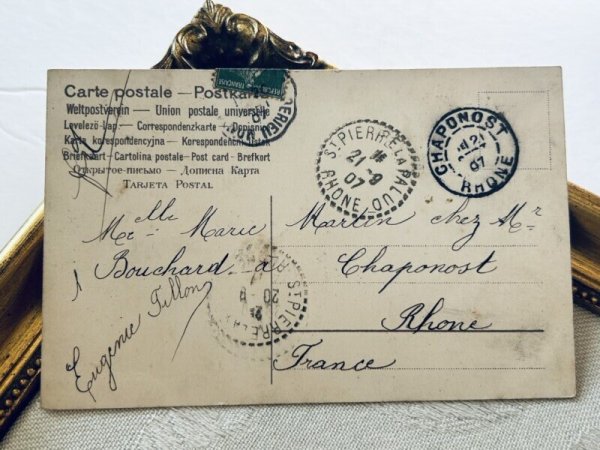 Carte postale — Postkarte
Weltpostverein — Union postale universelle
Levelező-Lap — Correspondenzkarte — Dopisnice
Karta korespondencyjna — Korespondenční lístek
Briefkort — Cartolina postale — Post card — Brefkort
Открытое письмо — Дописна Карта
TARJETA POSTAL
ST PIERRE LA PALUD
21 - 9
07
RHONE
CHAPONOST
21
07
RHONE
Melle Marie Martin chez Mr
Bouchard à Chaponost
Rhone
France
Eugenie Tillon
ST PIERRE LA
20